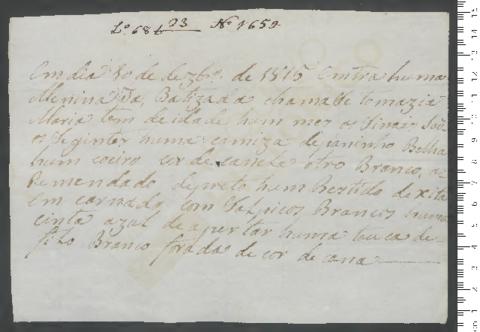 Lº 684 23 Nº 1652
Em dia 10 de dezbrº. de 1815 Entra huma
Menina Ja, Batizada chamace tomazia
Maria tem de idade hum mez os Sinais São
os Seguintes huma camiza de paninho Belha
hum coeiro cor de canele otro Branco,
Remendado de preto hum Bestido de xita
Em carnado com Salpicos Brancos huma
cinta azul de apertar huma touca de
filo Branco forada de cor de cana